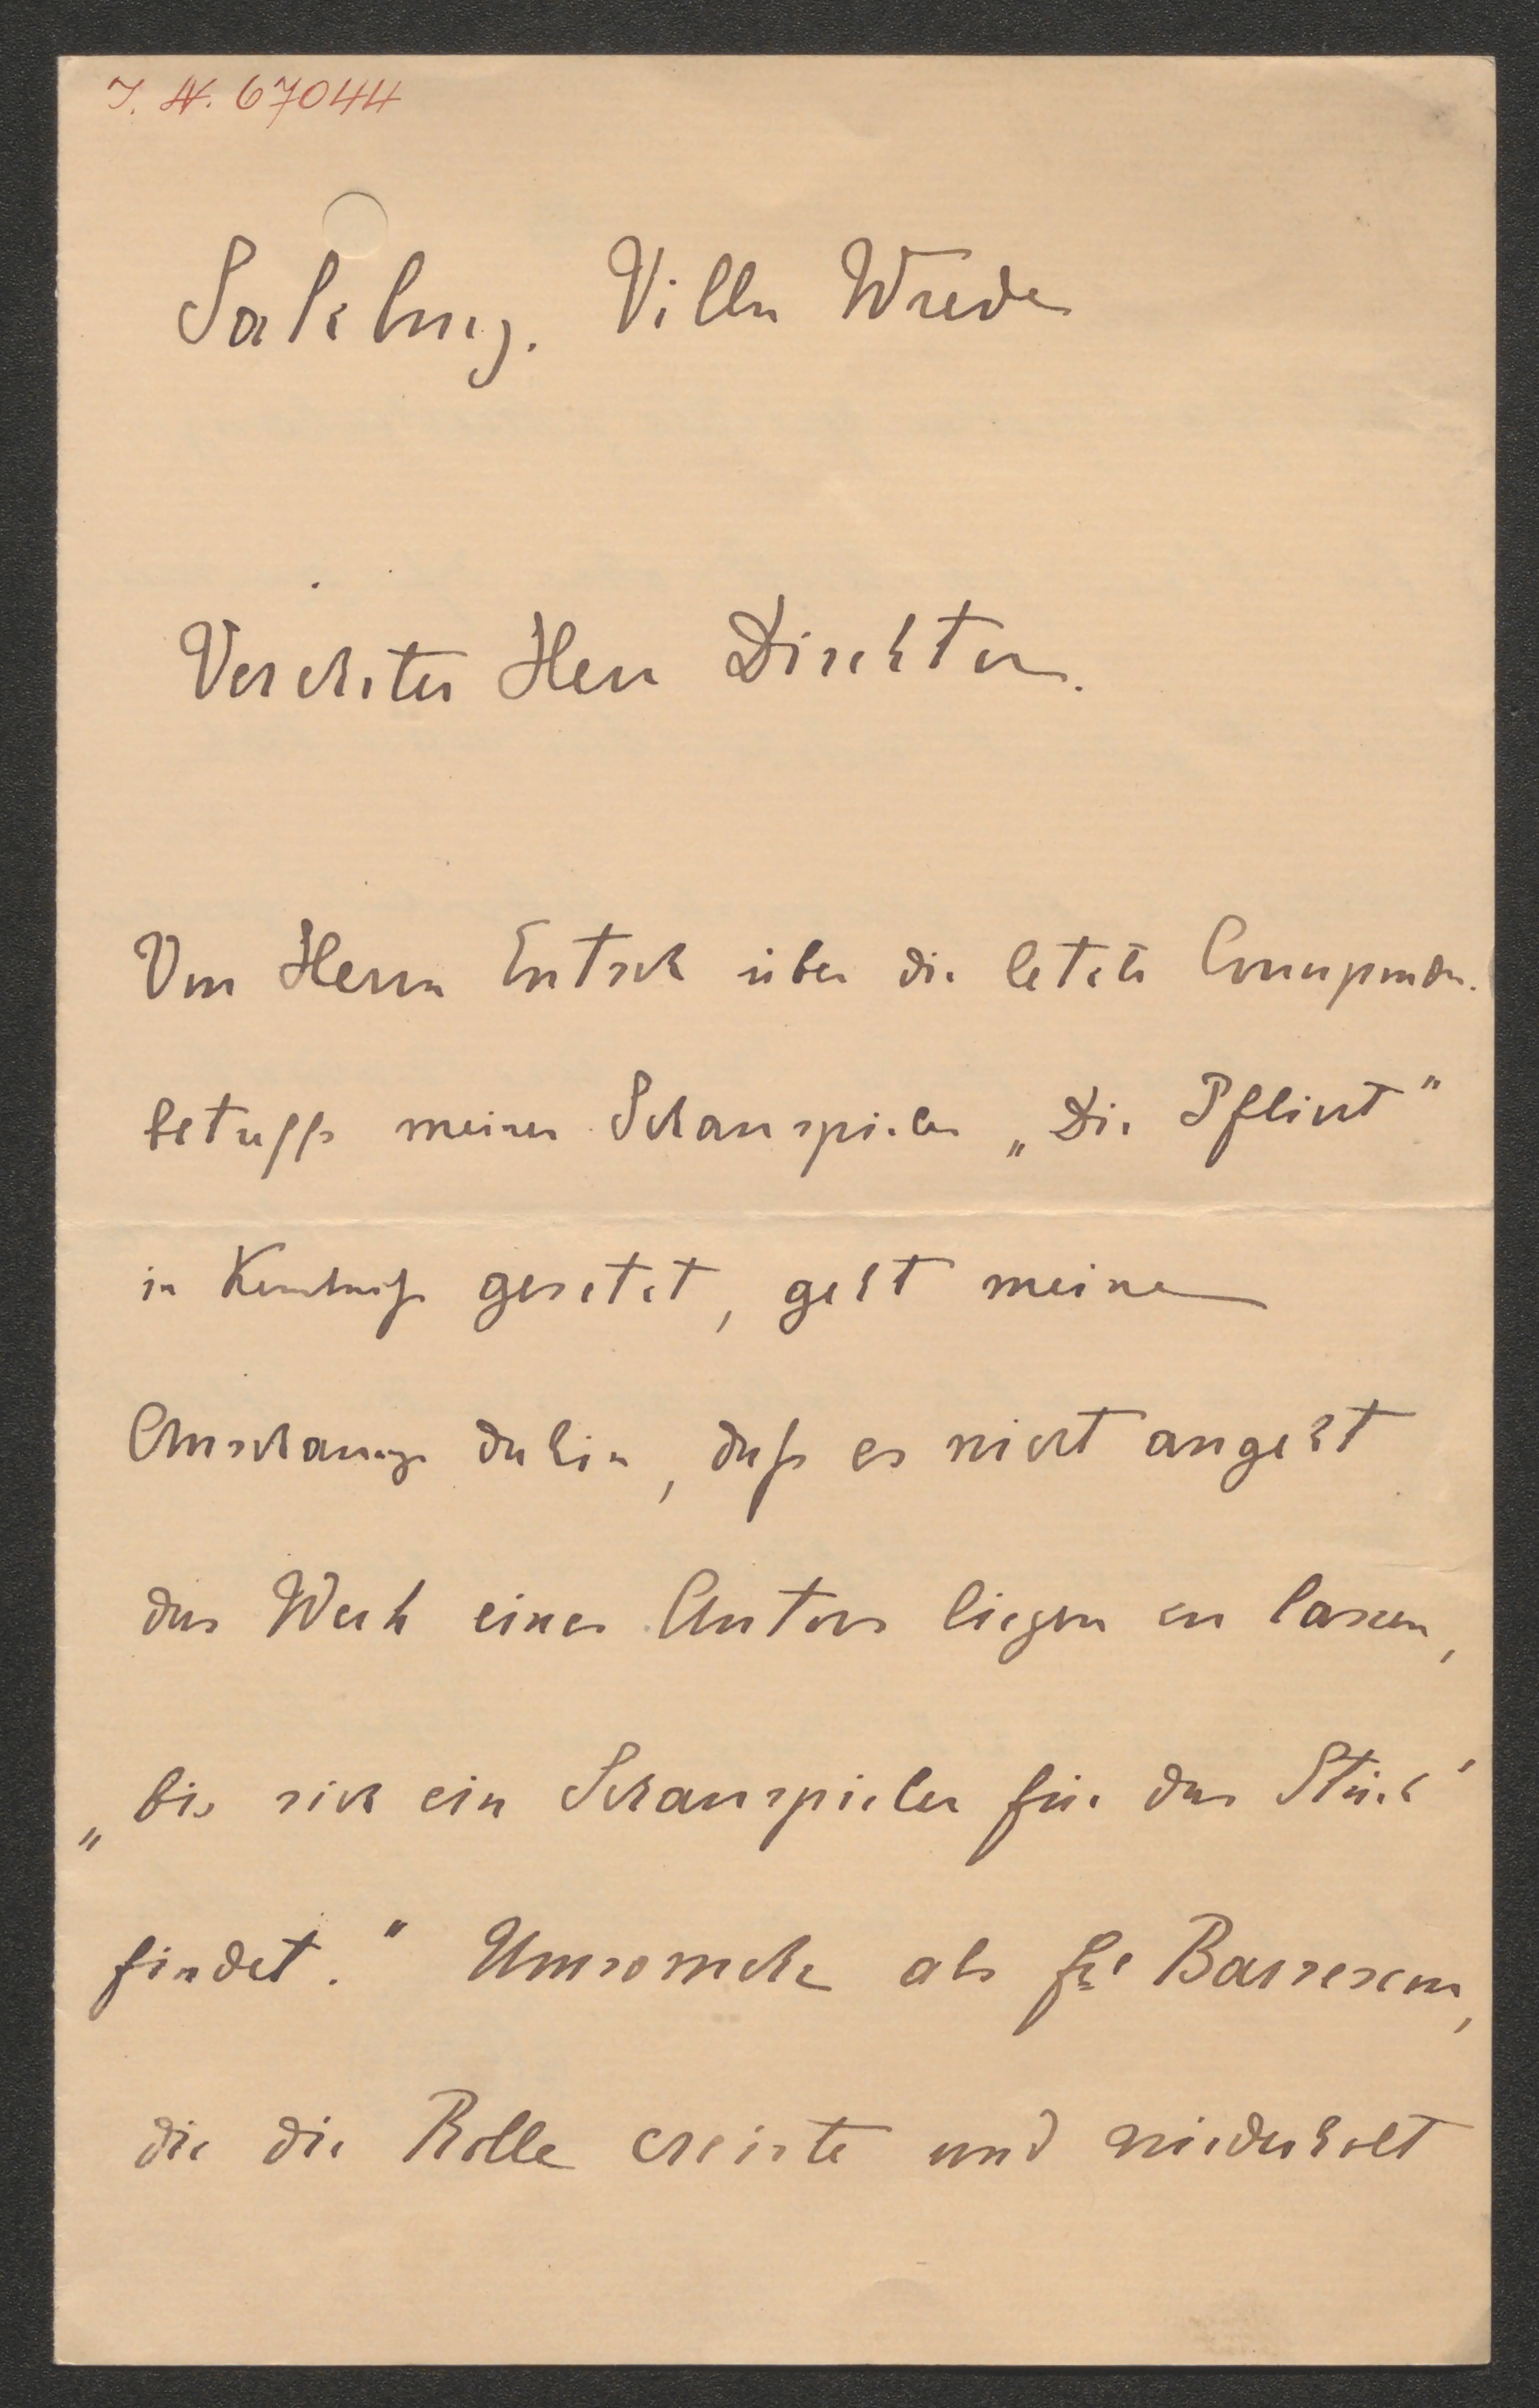 I. N. 67044
Salzburg. Villa Wrede
Verehrter Herr Direktor.
Von Herrn Entsch über die letzte Correspondz.
betreffs meines Schauspieles „Die Pflicht"
in Kenntniß gesetzt, geht meine
Anschauung dahin, daß es nicht angeht
das Werk eines Autors liegen zu lassen,
„bis sich ein Schauspieler für das Stück
findet." Umsomehr als Frl Barsescu,
die die Rolle creirte und wiederholt